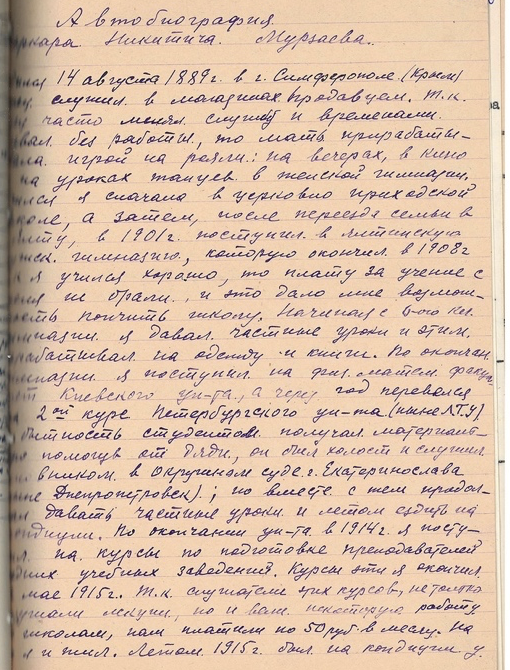 Автобиография
Никитича. Мурзаева.
14 августа 1889г. в г. Симферополе. (Крым)
служил в магазинах продавцем. Т.к.
часто менял службу и временами
без работы, то мать прирабаты-
игрой на рояли: на вечерах, в кино
на уроках танцев в женской гимназии.
я сначала в церковно приходской
а затем, после переезда семьи в
в 1901г. поступил в Ялтинскую
гимназию, которую окончил в 1908г
я учился хорошо, то плату за учение с
не брали и это дало мне возмож-
кончить школу. Начиная с 6-ого кл.
я давал частные уроки и этим
на одежду и книги. По окончан.
я поступил на физ. матем. факу
Киевского ун-та, а через год перевелся
2ой курс Петербургского ун-та (ныне ЛГУ)
студентом получал материаль-
помощь от дяди, он был холост и служил
в Окружном суде г. Екатеринослава
Днепропетровск); но вместе с тем продол-
давать частные уроки и летом ездить на
По окончании ун-та в 1914г. я посту-
на курсы по подготовке преподавателей
учебных заведений. Курсы эти я окончил
мае 1915г. Т.к. слушатели этих курсов, не только
лекции, но и вели некоторую работу
школам, нам платили по 50 руб. в месяц. На
и жил. Летом 1915г. был на кондиции у